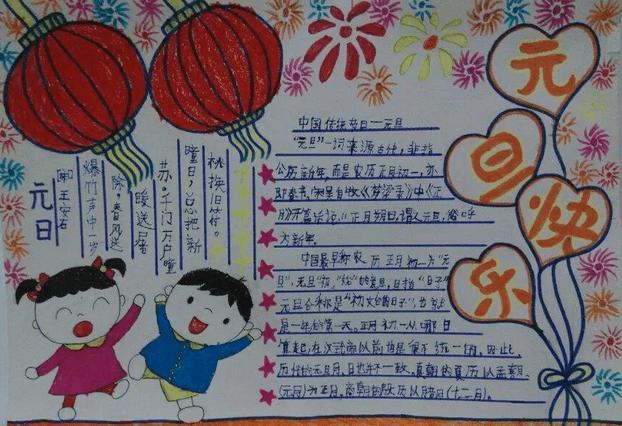 元
旦
快
乐
元日
王安石
爆竹声中一岁
除,春风送
暖送屠
苏。千门万户曈
曈日,总把新
换旧符。
中国传统节日一元旦
"元旦"一词来源古代,非指
公历新年,而是农历正月初一,亦
即春节,吴自牧《梦梁录》中《正
月》开篇:"正月朔日,谓之元旦,俗呼
为新年。
中国最早称农历正月初一为"元
旦",元是"初","始"的意思,旦指"日子"
元旦合称是"初始的日子",也
是一年的第一天。正月初一从哪日
算起,在汉武帝以前也是很不统一的,因此,
历代的元旦月、日也并不一致。夏朝的夏历以孟
(元月)为正月,商朝的殷历以腊月(十二月)。